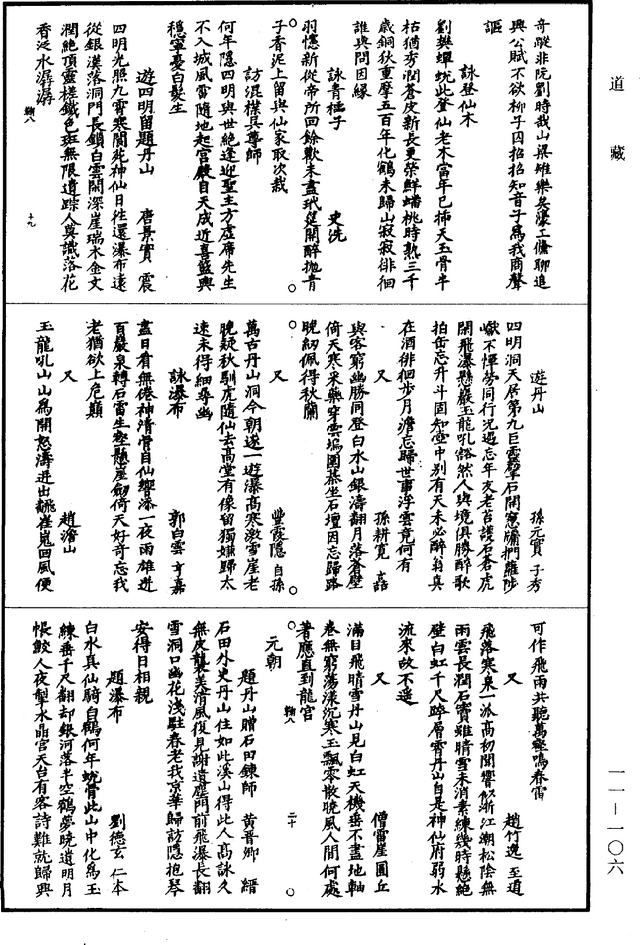 道藏
奇蹤非阮劉時哉山㷼雉樂矣濠上鯈聊追
興公賦不欲柳子囚招招知音子爲我商聲
謳
詠登仙木
劉樊蟬蛻此登仙老木當年已插天玉骨半
枯猶秀潤蒼皮新長更榮鮮蟠桃時熟三千
歲銅狄重摩五百年化鶴未歸山寂寂徘徊
誰與問因緣
詠青櫺子 史洗
羽憶新從帝所回餘歡未盡玳筵開醉拋青
子香泥上留與仙家取次栽
訪混樸真尊師
何年隱四明與世絶逢迎聖主方虛席先生
不入城風雷隨地起宫殿自天成近喜籃輿
穩寧憂白髮生
遊四明留題丹山 唐景賓 震
四明光照九霄寒閬苑神仙日往還瀑布遠
從銀漢落洞門長鎖白雲閒深崖瑞木金文
潤絶頂靈槎鐵色斑無限遺踪人莫識落花
香泛水潺潺
鞠八 十九
遊丹山 孫元實 子秀
四明洞天居第九巨靈擘石開窻牖捫蘿陟
巘不憚勞同行況遇忘年友老苔護石蒼虎
閑飛瀑懸巖玉龍吼豁然人與境俱勝醉歌
拍缶忘升斗固知壺中别有天未必醉翁真
在酒徘徊步月澹忘歸世事浮雲竟何有
又 孫耕寛 嚞
與客窮幽勝同登白水山銀濤翻月落蒼壁
倚天寒采藥穿雲塢圍棊坐石壇因忘歸路
晚紉佩得秋蘭
又 豐霞隱 自孫
萬古丹山洞今朝遂一遊瀑高寒激雪崖老
晚疑秋馴虎隨仙去高堂有像留獨嫌歸太
速未得細尋幽
詠瀑布 郭白雲 亨嘉
盡日看無倦神清骨自仙響添一夜雨雄迸
百巖泉轉石雷生壑懸崖劒倚天好奇忘我
老猶欲上危巔
又 趙澹山
玉龍吼山山爲開怒濤迸出翻崔嵬回風便
可作飛雨共聽萬壑鳴春雷
又 趙竹逸 至道
飛落寒泉一派高初聞響似浙江潮松陰無
雨雲長潤石竇雖晴雪未消素練幾時懸絶
壁白虹千尺跨層霄丹山自是神仙府弱水
流來故不遥
又 僧雷崖 圓丘
滿目飛晴雪丹山見白虹天機垂不盡地軸
卷無窮蕩漾沉寒玉飄零散晚風人間何處
著應直到龍宫
鞠八 二十
元朝
題丹山贈石田鍊師 黄晋卿 縉
石田外史丹山住如此溪山得此人高詠久
無皮襲美清風復見謝遺塵門前飛瀑長翻
雪洞口幽花淺駐春老我京華歸訪隱抱琴
安得日相親
題瀑布 劉德玄 仁本
白水真仙騎白鶴何年蛻骨此山中化爲玉
練垂千尺翻却銀河落半空鶴夢曉遺明月
帳鮫人夜掣水晶宫天台有客詩難就歸興
一一—一〇六